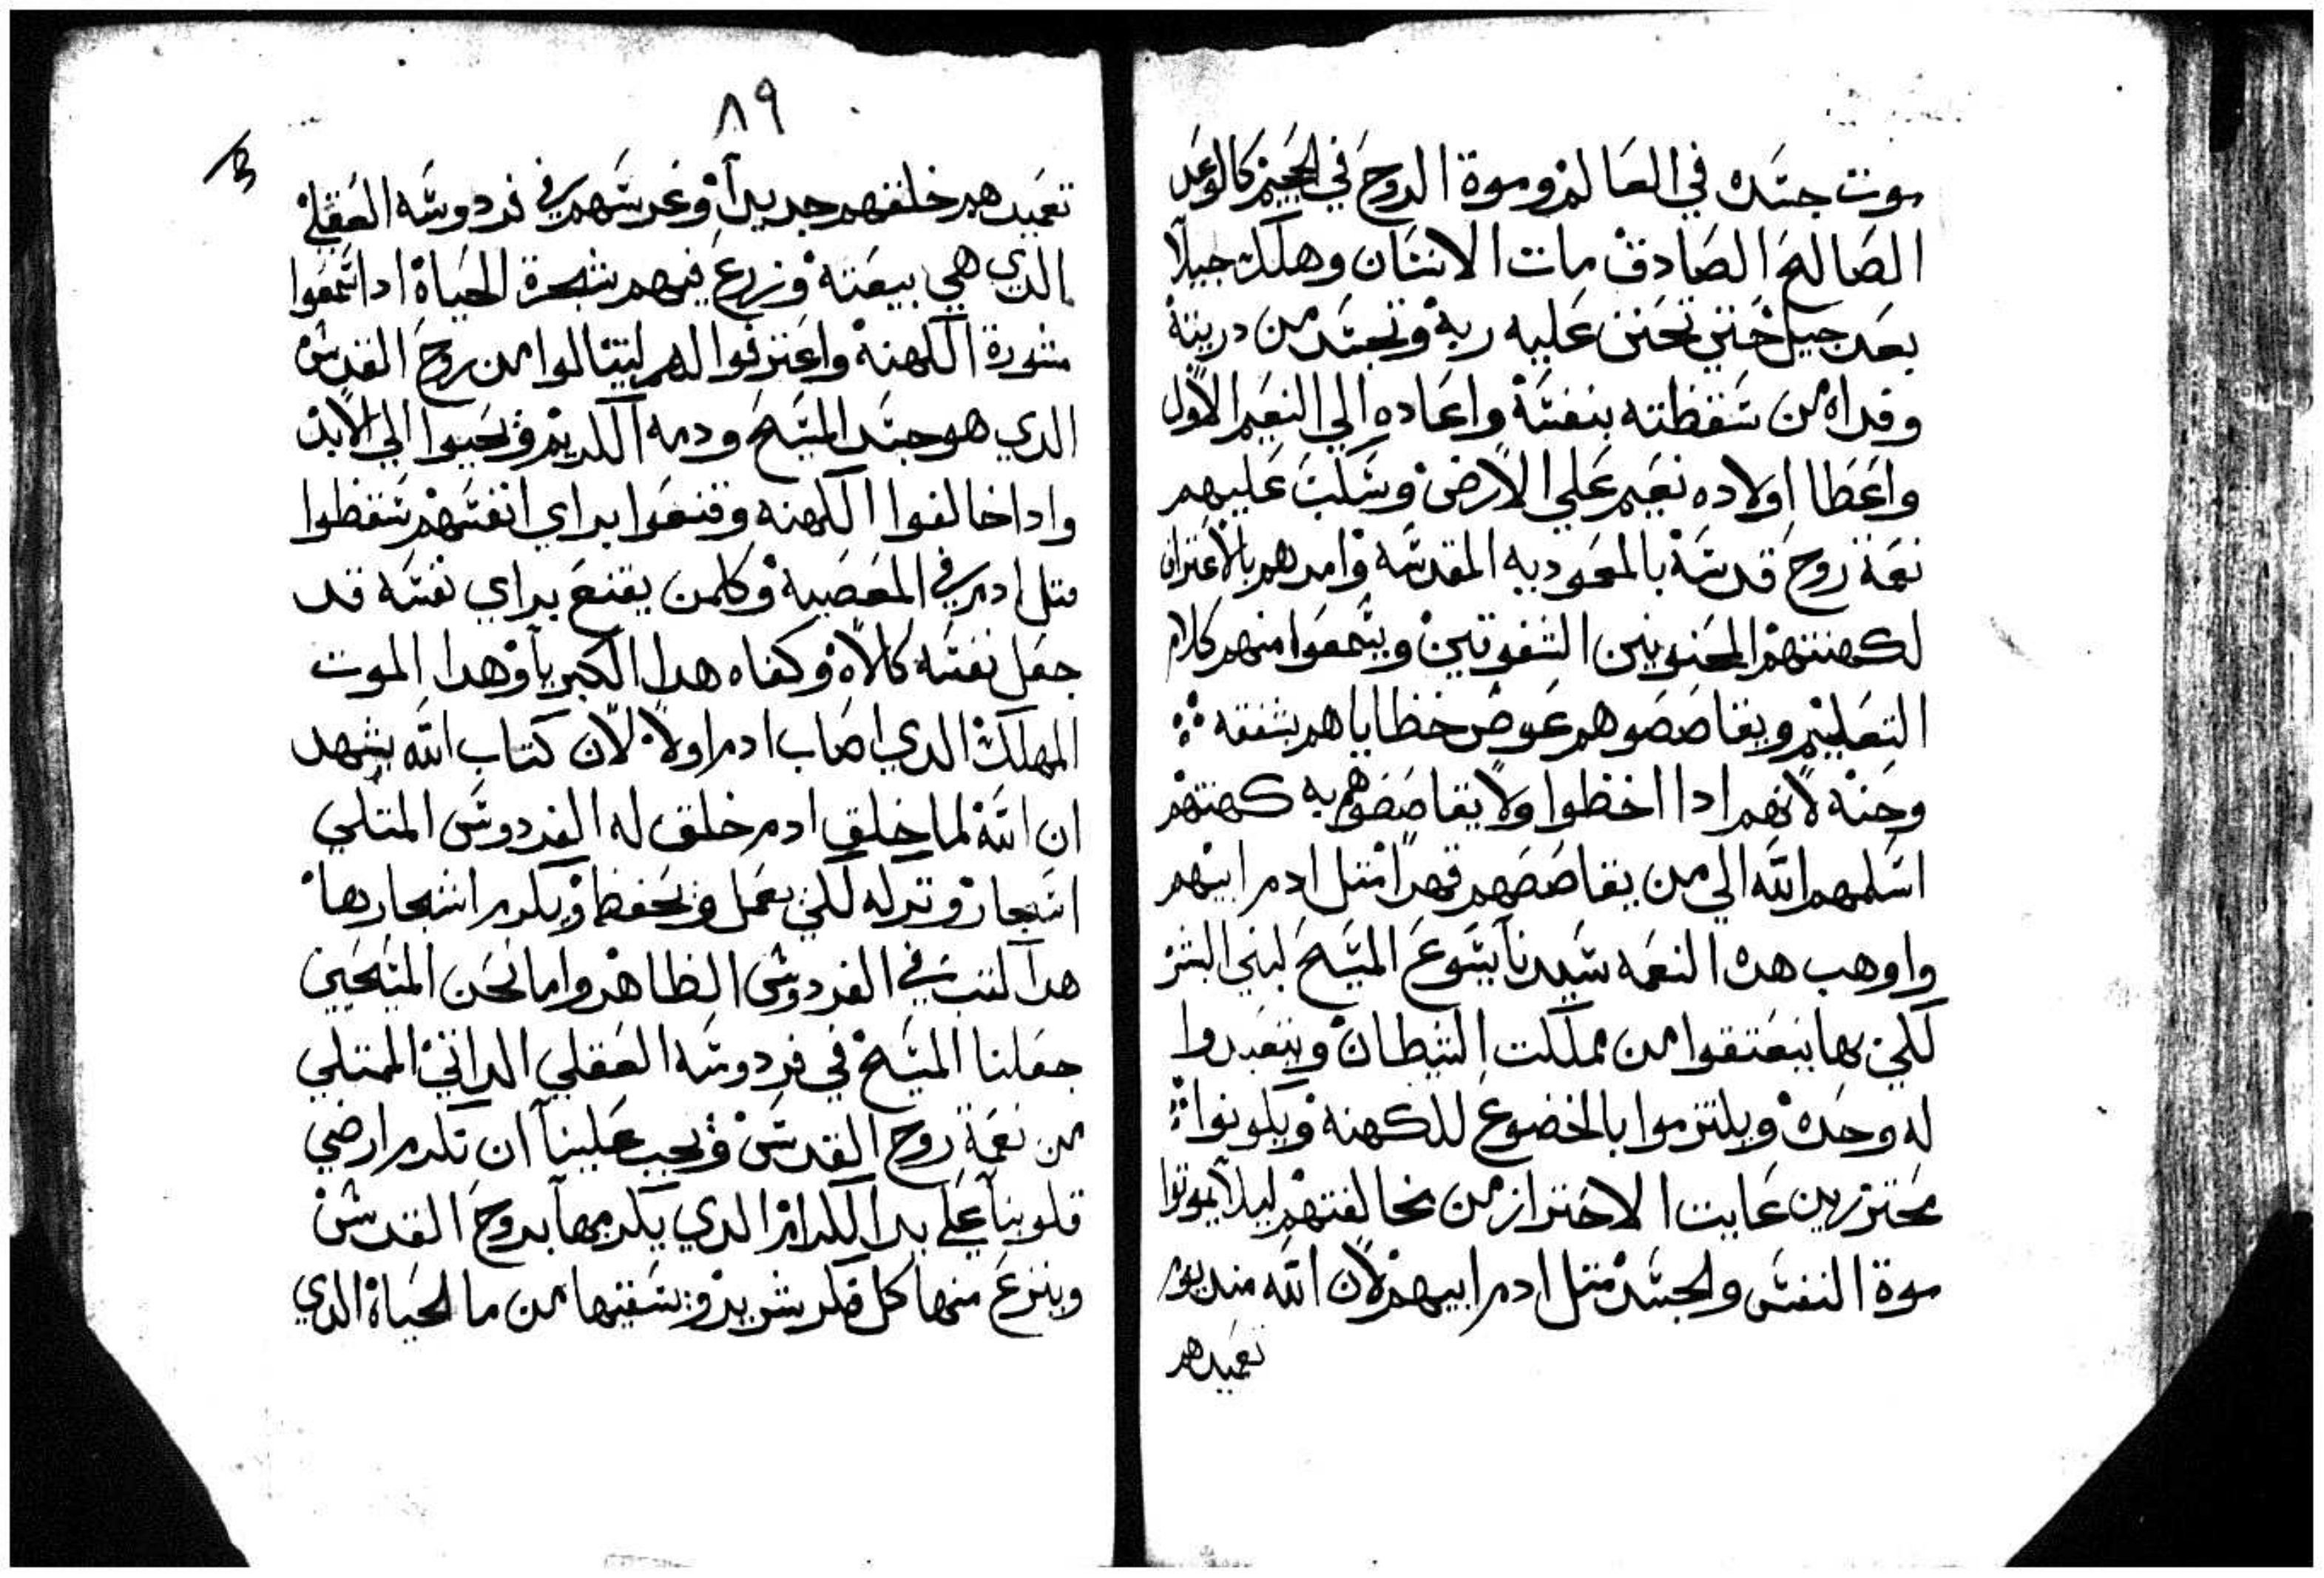 موت جسده في العالم وموة الروح في الجحيم كالوعد
الصالح الصادق مات الانسان وهلك جيلاً
بعد جيل حتي تحنن عليه ربه وتجسد من دريته
وفداه من سقطته بنفسه واعاده الي النعيم الاول
واعطا اولاده نعيم علي الارض وسكب عليهم
نعمة روح قدسه بالمعموديه المقدسه وامرهم بالاعتراف
لكهنتهم المحنونين الشفوقين ويسمعوا منهم كلام
التعليم ويقاصصوهم عوض خطاياهم بشفقه
وحنه لانهم ادا اخطوا ولا يقاصصوهم به كهنتهم
اسلمهم الله الي من يقاصصهم قهراً متل ادم ابيهم
واوهب هده النعمه سيدنا يسوع المسيح لبني البشر
لكي بها ينعتقوا من مملكت الشيطان ويتعبدوا
له وحده ويلتزموا بالخضوع للكهنه ويكونوا
محترزين غايت الاحتراز من مخالفتهم ليلا يموتوا
موة النفس والجسد متل ادم ابيهم لان الله مند يوم
تعميدهم
٨٩
تعميدهم خلقهم جديداً وغرسهم في فردوسه العقلي
الدي هي بيعته وزرع فيهم شجرة الحياة ادا سمعوا
مشورة الكهنه واعترفوا لهم لينالوا من روح القدس
الدي هو جسد المسيح ودمه الكريم ويحيوا الي الابد
وادا خالفوا الكهنه وقنعوا براي انفسهم سقطوا
متل ادم في المعصيه وكلمن يقنع براي نفسه قد
جعل نفسه كالاه وكفاه هدا الكبريا وهدا الموت
المهلك الدي اصاب ادم اولا لان كتاب الله يشهد
ان الله لما خلق ادم خلق له الفردوس الممتلي
اشجار وتركه لكي يعمل ويحفظ ويكرم اشجارها
هدا كتب في الفردوس الظاهر واما نحن المسيحيين
جعلنا المسيح في فردوسه العقلي الداتي الممتلي
من نعمة روح القدس ويجب علينا ان نكرم ارضي
قلوبنا علي يد الكرام الدي يكرمها بروح القدس
وينزع منها كل فكر شرير ويسقيها من ما الحياة الدي